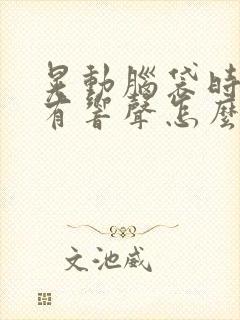 晃動腦袋時
有響聲怎麼
文池威